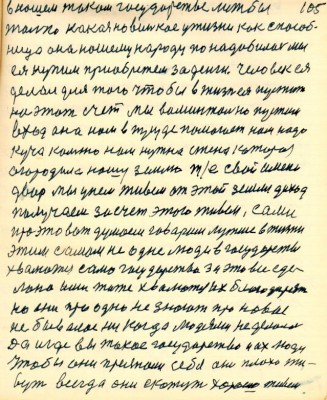 в ношем таком государстве литбы 105
толпо какая новинкое ужизни как способ-
ница она нашему народу по надобилас мы
ея купим приобретем за денги. человек ся
делан для того чтобы в жизне
на этот счет мы валинтално пустим
вход она нам в труде помогает нам надо
куча камню нам нужна стена
огородим нашу землю т/е свой имене
двор мы у нем живем от этой земли доход
получаем за счет этого живем, сами
про это вот думаем говарим лутше в жизни
этим самым не одне люди в государстве
хвалют само государства за это все сде-
лано они тоже хвалют их благодарят
но они про одно не знают про новое
не бывалое ни когда людями не делано
да и где вы такое государство и их люди
чтобы они признали себя они плохо жи-
вут всегда они скажут хорошо живем